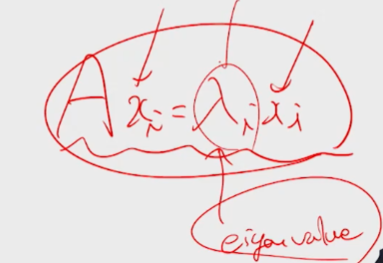 A xᵢ = λᵢ xᵢ
eigenvalue